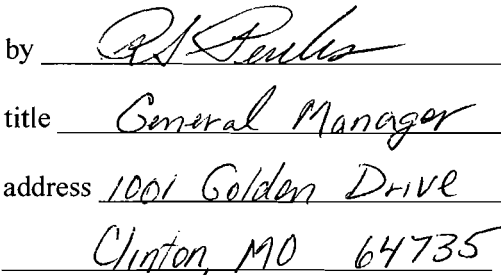 by
title General Manager
address 1001 Golden Drive
Clinton, MO 64735